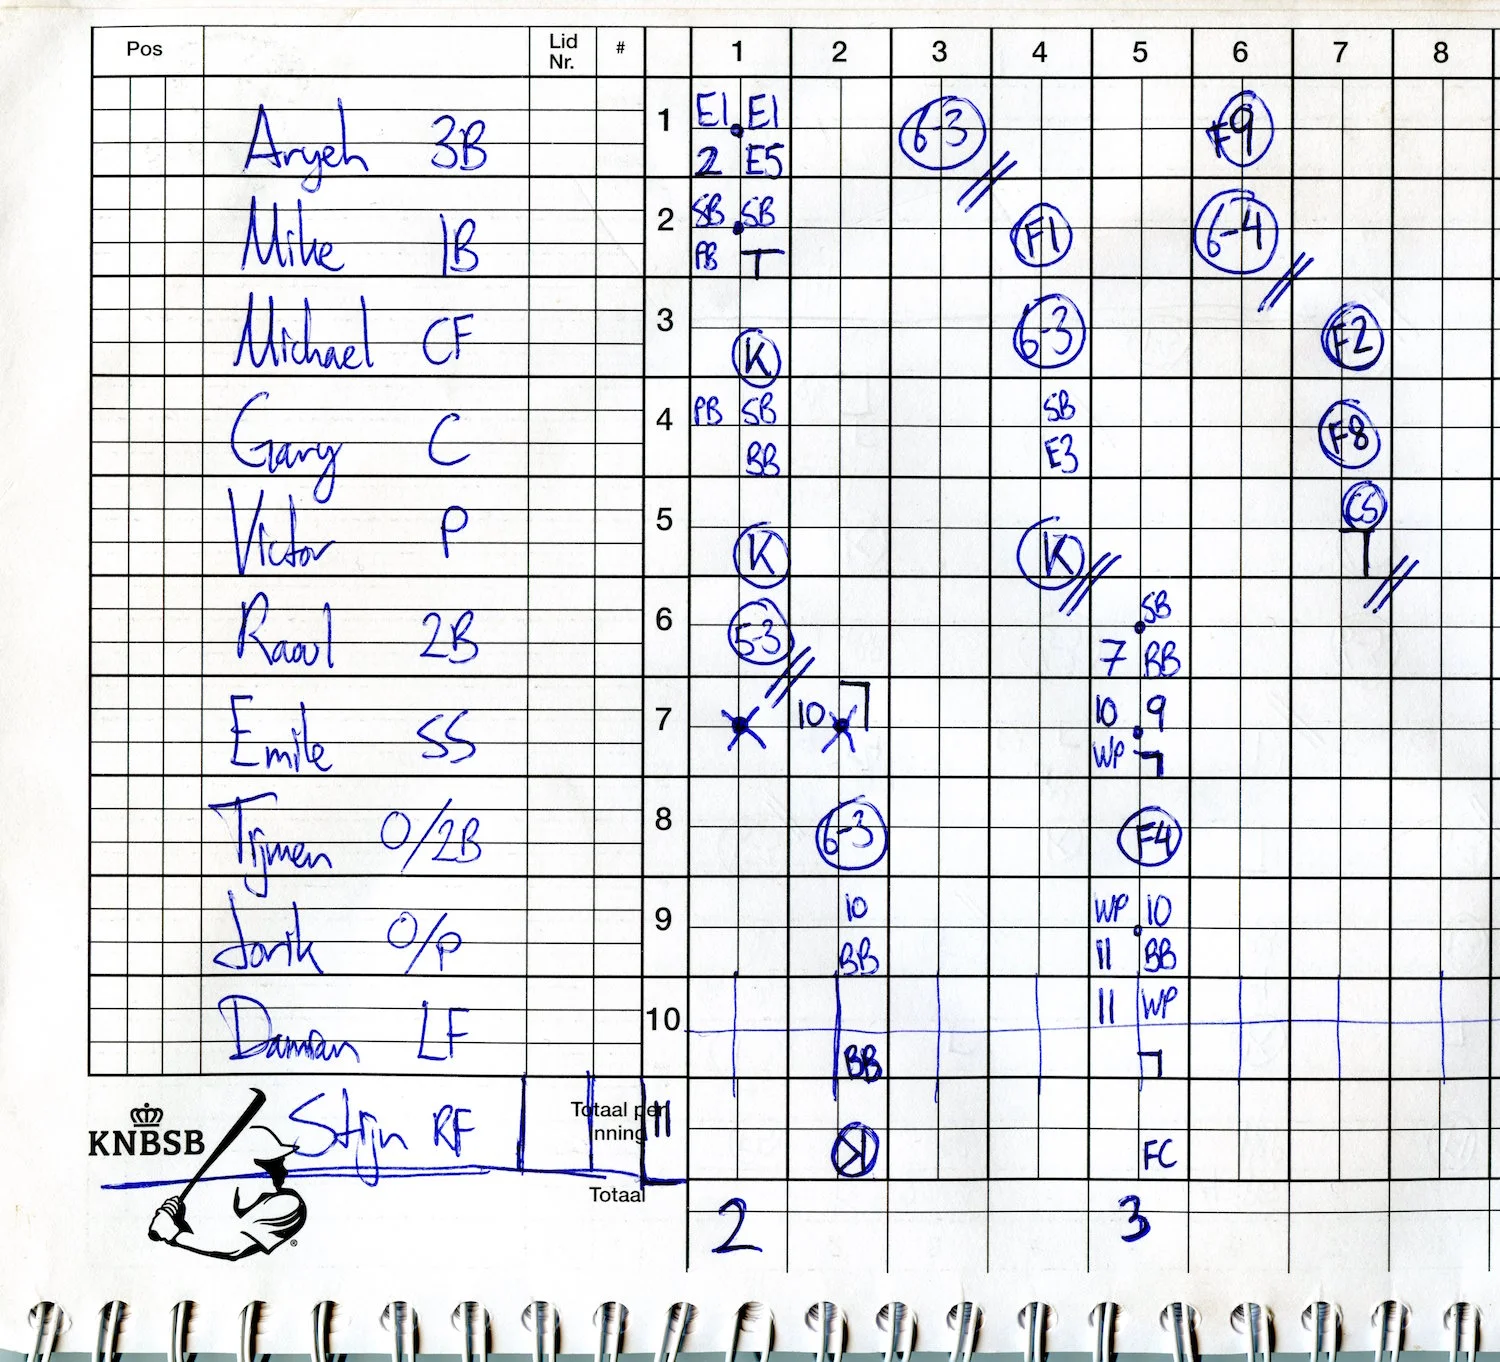 Pos Lid Nr. # 1 2 3 4 5 6 7 8
Aryeh 3B 1 E1 E1 6-3 F9
2 E5
Mike 1B 2 SB SB F1 6-4
PB T
Michael CF 3 K 6-3 F2
Gary C 4 PB SB SB F8
BB E3
Victor P 5 K K CS
Raoul 2B 6 5-3 SB
7 BB
Emile SS 7 10 10 9
WP
Tijmen O/2B 8 6-3 F4
Jorik O/P 9 10 WP 10
BB 11 BB
Damian LF 10 BB 11 WP
KNBSB Stijn RF Totaal per inning 11 K FC
Totaal 2 3